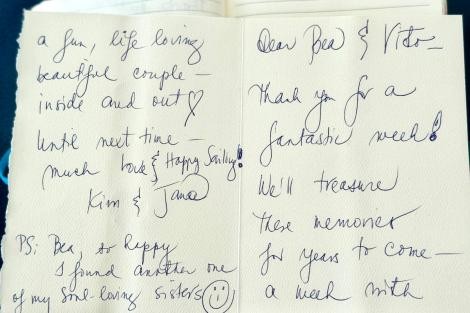 Dear Bea & Vito –
Thank you for a
fantastic week!
We'll treasure
these memories
for years to come –
a week with
a fun, life loving
beautiful couple –
inside and out ♡
Until next time –
much love & Happy Sailing!
Kim & Jana
PS: Bea, so happy
I found another one
of my soul-loving sisters ☺